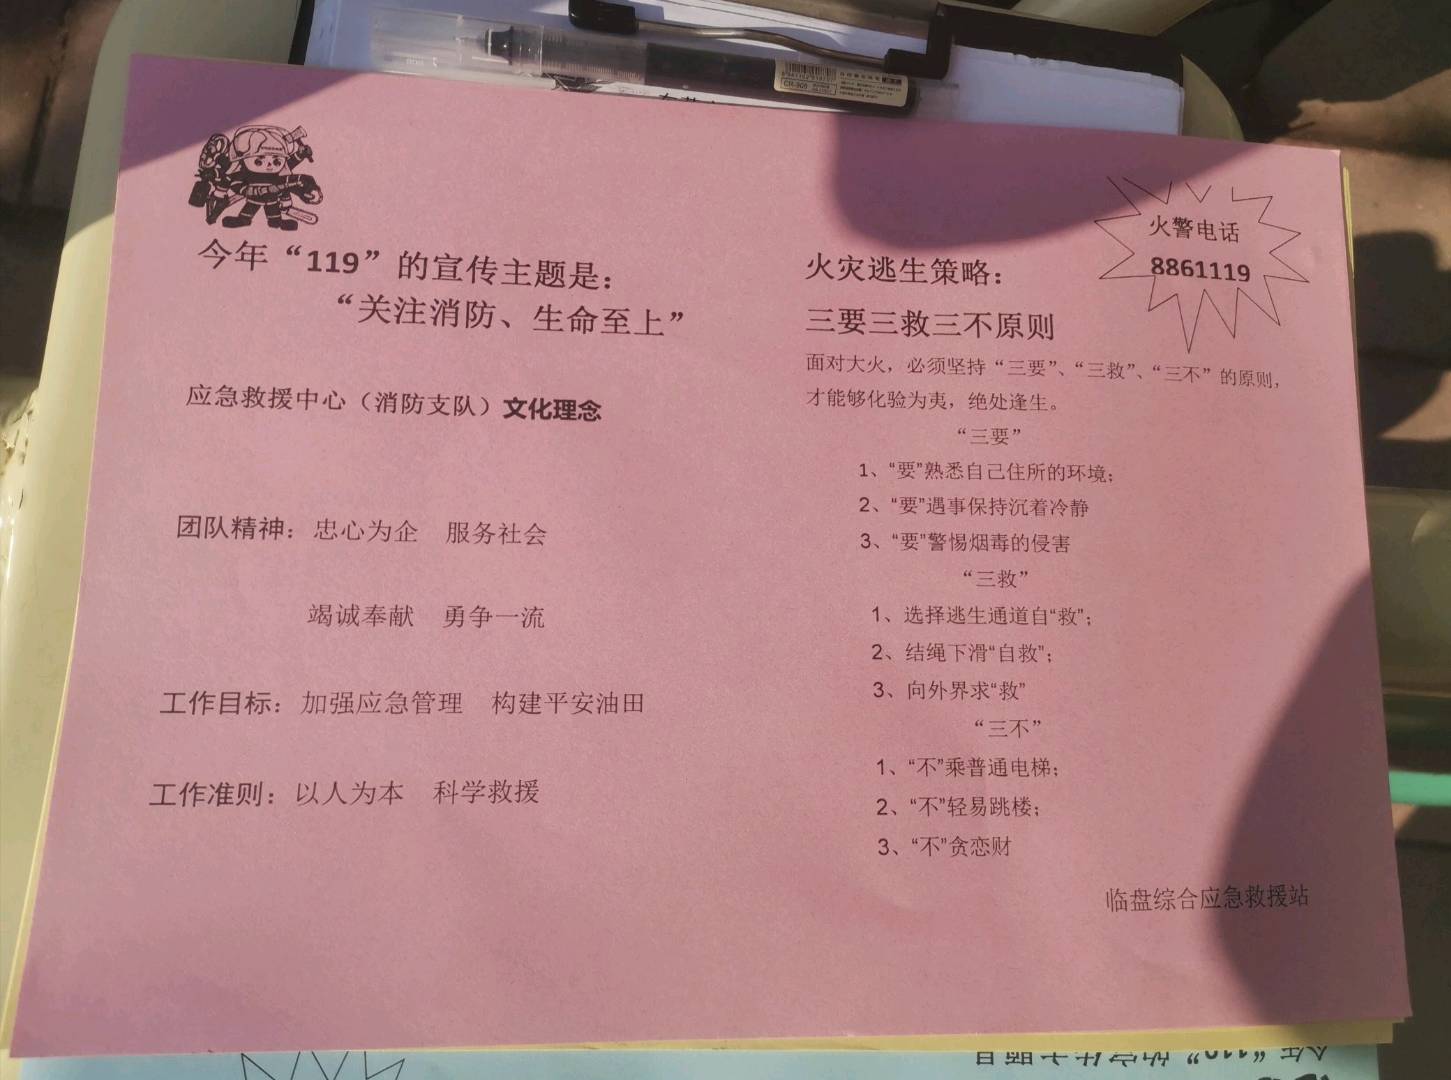 今年“119”的宣传主题是：
“关注消防、生命至上”
应急救援中心（消防支队）文化理念
团队精神：忠心为企 服务社会
竭诚奉献 勇争一流
工作目标：加强应急管理 构建平安油田
工作准则：以人为本 科学救援
火警电话
8861119
火灾逃生策略：
三要三救三不原则
面对大火，必须坚持“三要”、“三救”、“三不”的原则，
才能够化验为夷，绝处逢生。
“三要”
1、“要”熟悉自己住所的环境；
2、“要”遇事保持沉着冷静
3、“要”警惕烟毒的侵害
“三救”
1、选择逃生通道自“救”；
2、结绳下滑“自救”；
3、向外界求“救”
“三不”
1、“不”乘普通电梯；
2、“不”轻易跳楼；
3、“不”贪恋财
临盘综合应急救援站